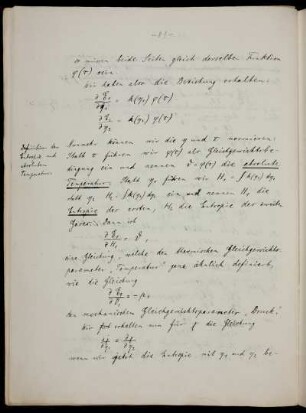 - 81 -
so müssen beide Seiten gleich derselben Funktion
φ(τ) sein.
Wir haben also die Beziehung erhalten:
∂E₁/∂η₁ = k(η₁) φ(τ)
∂E₂/∂η₂ = k(η₂) φ(τ)
Definition der
Entropie und
absoluten
Temperatur.
Danach können wir die η und τ normieren.
Statt τ führen wir φ(τ) als Gleichgewichtsbe-
dingung ein und nennen ϑ = φ(τ) die absolute
Temperatur. Statt η₁ führen wir H₁ = ∫k(η₁)dη₁
statt η₂ H₂ = ∫k(η₂)dη₂ ein und nennen H₁ die
Entropie der ersten, H₂ die Entropie der zweiten
Dann ist
∂E₁/∂H₁ = ϑ,
eine Gleichung, welche den thermischen Gleichgewichts-
parameter „Temperatur“ ganz ähnlich definiert,
wie die Gleichung
∂E₁/∂V₁ = -p₁
den mechanischen Gleichgewichtsparameter „Druck“.
Wir erhalten nun für f die Gleichung
∂f/∂η₁ = ∂f/∂η₂
wenn wir jetzt die Entropie mit η₁ und η₂ be-